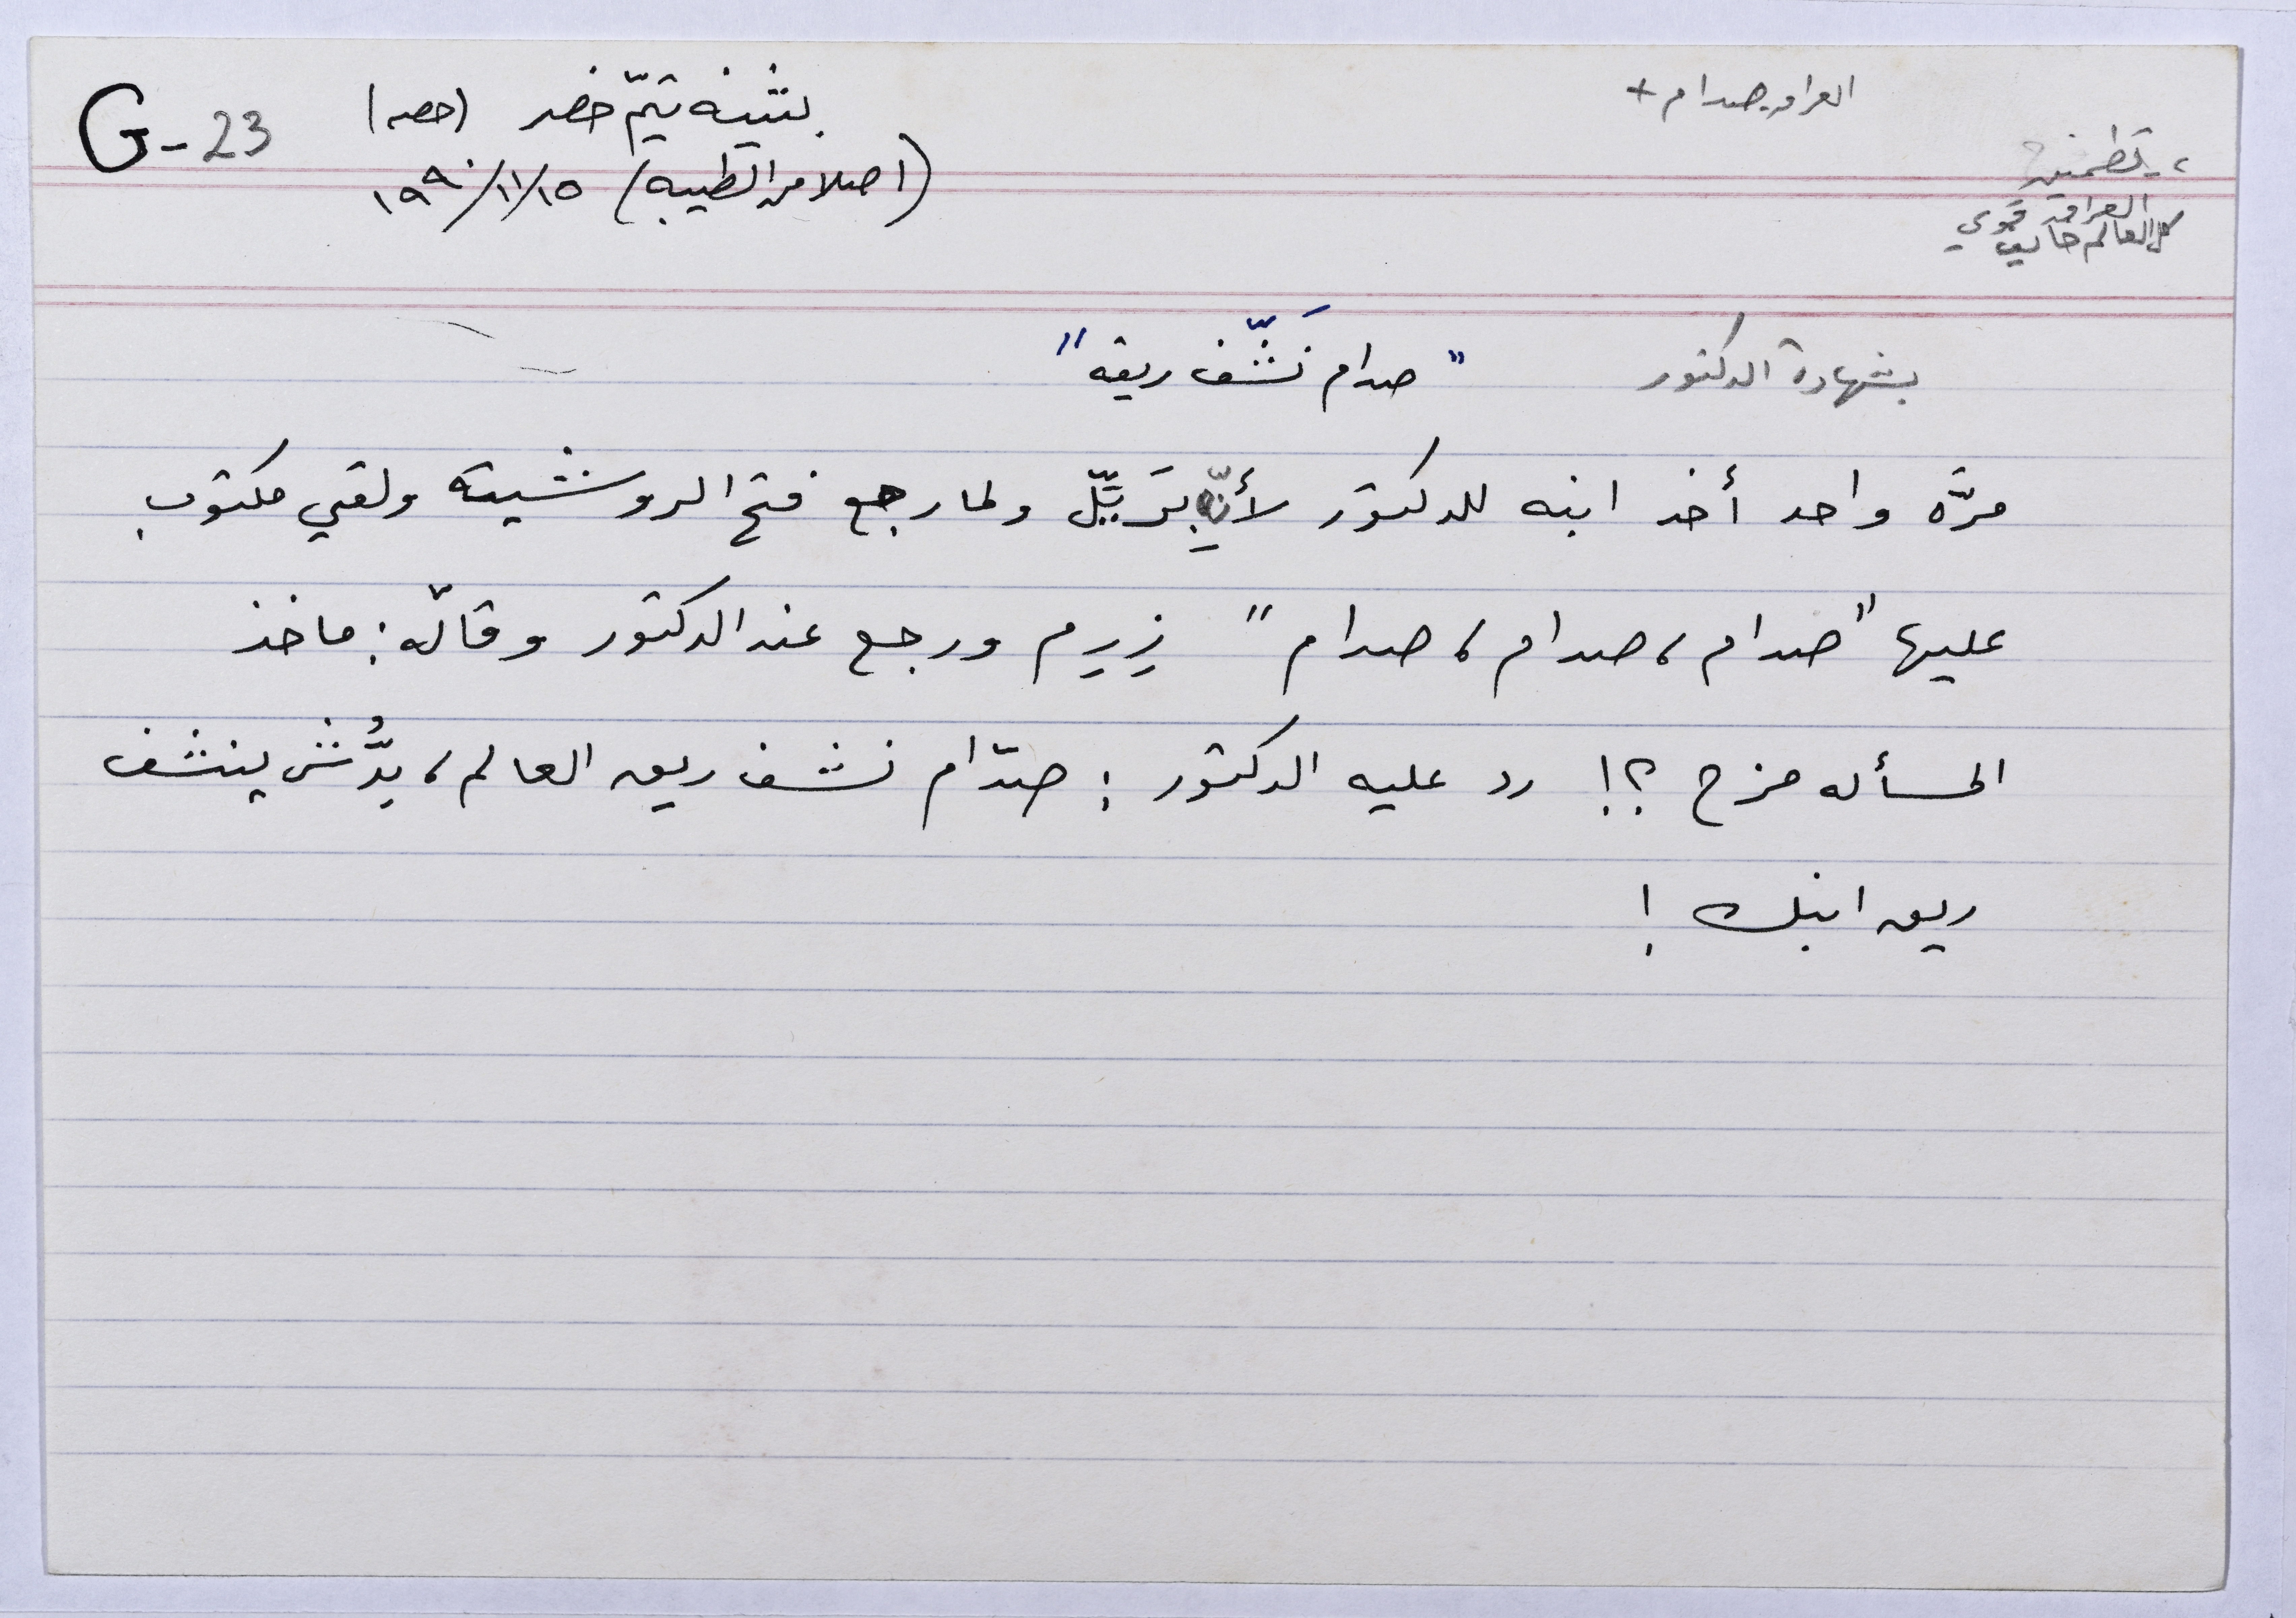 العراق صدام +
G-23
بثينه تيّم خضر (حصه)
(اصلا من الطيبه) ١٩٩٠/١١/١٥
، تطمين
العراق قوي
كل العالم خايف
بشهادة الدكتور
"صدام نَشّف ريقه"
مرّه واحد أخذ ابنه للدكتور لأنّه بِرَيِّل ولما رجع فتح الروشيته ولقي مكتوب
عليها "صدام، صدام، صدام" زِرِم ورجع عند الدكتور وقالّه: ماخذ
المسأله مزح ؟! رد عليه الدكتور: صدّام نشف ريق العالم، بِدُّش ينشف
ريق ابنك !